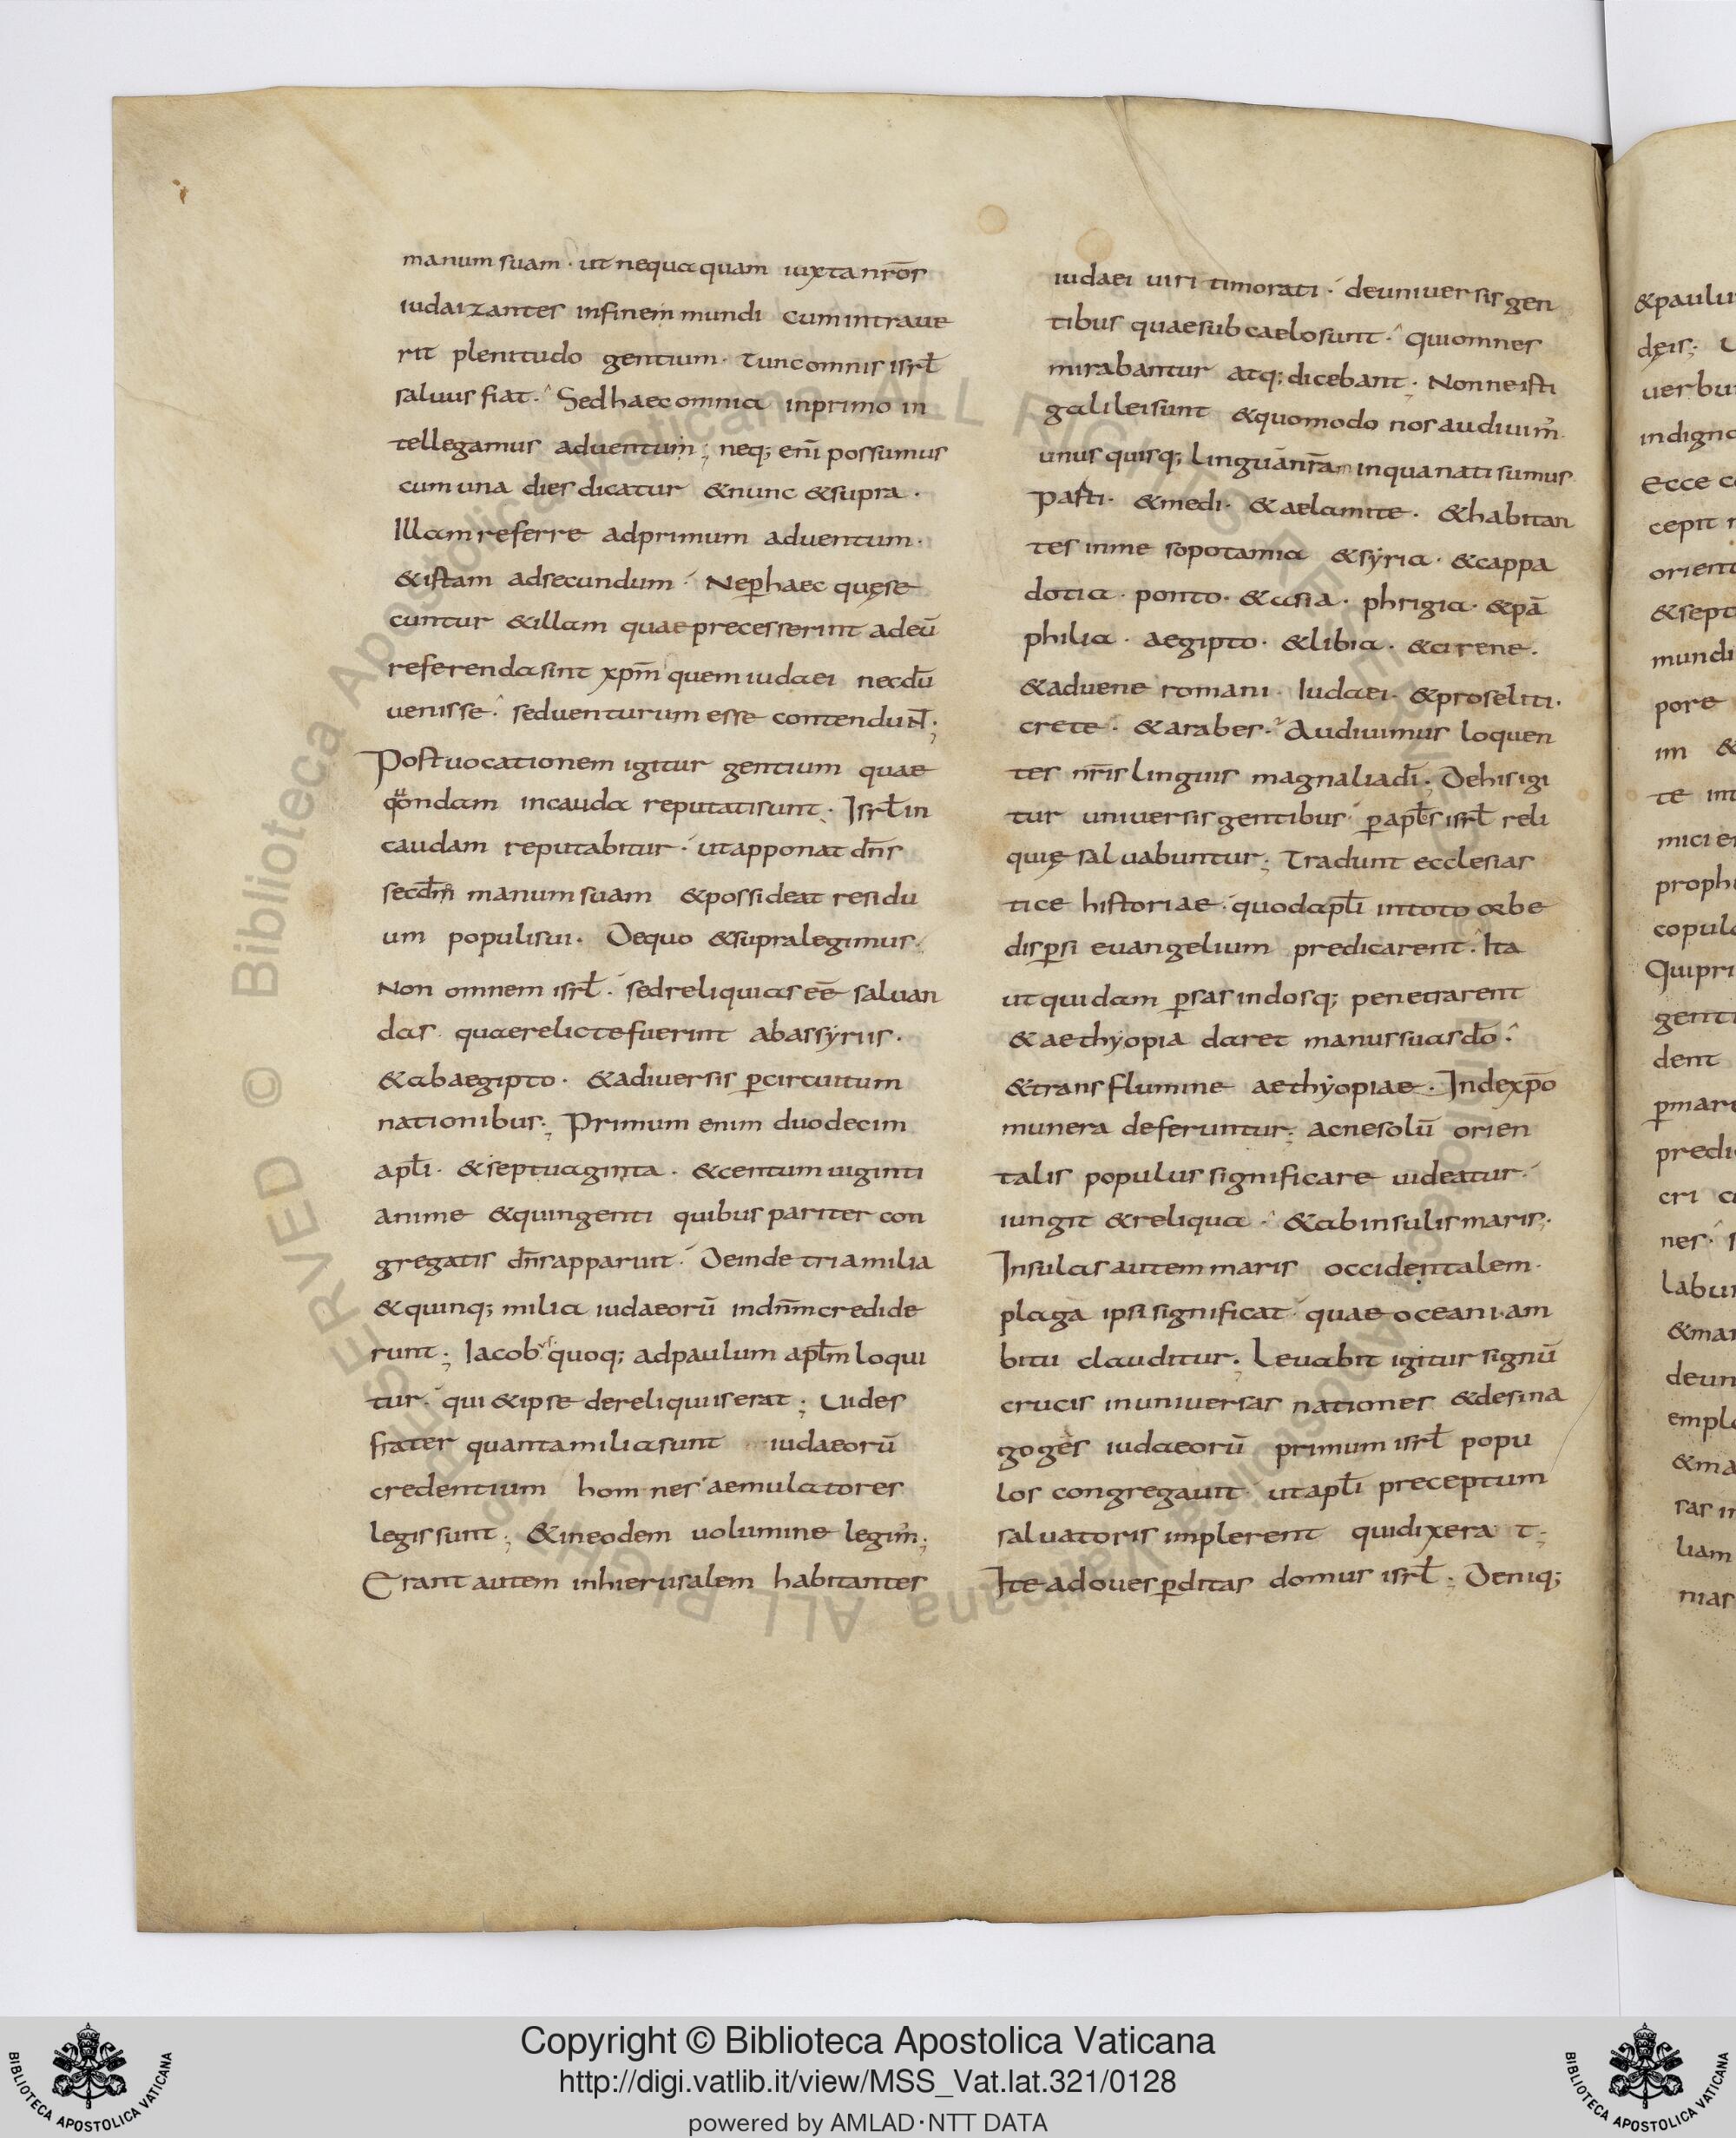 manum suam · ut nequaquam iuxta nr̄os
iudaizantes infinem mundi cum intraue
rit plenitudo gentium · tunc omnis isrl̄
saluus fiat · Sed haec omnia inprimo in
tellegamus aduentum ; neq; enī possumus
cum una dies dicatur & nunc & supra ·
Illam referre adprimum aduentum ·
& istam adsecundum · Neꝑ haec quęse
cuntur & illam quae precesserint ad eū
referenda sint xp̄m quem iudaei necdū
uenisse · sed uenturum esse contendunt̄ ;
Post uocationem igitur gentium quae
qͦndam incauda reputati sunt · Isrl̄ in
caudam reputabitur · ut apponat dn̄s
secd̄m manum suam & possideat residu
um populi sui · De quo & supra legimus ·
Non omnem isrl̄ · sed reliquias eē saluan
das quae relicte fuerint ab assyriis ·
& ab aegipto · & adiuersis ꝑ circuitum
nationibus ; Primum enim duodecim
apl̄i · & septuaginta · & centum uiginti
anime & quingenti quibus pariter con
gregatis dn̄s apparuit · Deinde tria milia
& quinq; milia iudaeorū in dn̄m credide
runt ; Iacob us quoq; ad paulum apl̄m loqui
tur · qui & ipse dereliquiis erat ; Uides
frater quanta milia sunt iudaeorū
credentium hom nes aemulatores
legis sunt ; & in eodem uolumine legim̄ ;
Erant autem in hierusalem habitantes
iudaei uiri timorati · de uniuersis gen
tibus quae sub caelo sunt · Qui omnes
mirabantur atq; dicebant ; Nonne isti
galilei sunt & quomodo nos audiuim̄
unus quisq; linguā nr̄am in qua nati sumus
Pasti · & medi · & aelamite · & habitan
tes in me sopotamia & sẏria · & cappa
dotia · ponto · & asia · phrigia · & pā
philia · aegipto · & libia · & cirene ·
& aduene romani · Iudaei · & proseliti ·
crete · & arabes · Audiuimus loquen
tes nr̄is linguis magnalia dī ; De his igi
tur uniuersis gentibus ꝑ apl̄s isrl̄ reli
quię saluabuntur ; Tradunt ecclesias
tice historiae · quod apl̄i in toto orbe
disꝑsi euangelium predicarent · Ita
ut quidam ꝑsas indosq; penetrarent
& aethẏopia daret manus suas dō ·
& trans flumine aethẏopiae · Inde xp̄o
munera deferuntur ; ac ne solū orien
talis populus significare uideatur ·
iungit & reliqua · & ab insulis maris ;
Insulas autem maris occidentalem
plagā ipsi significat · quae oceani am
bitu clauditur ; Leuabit igitur signū
crucis in uniuersas nationes & desina
goges iudaeorū primum isrl̄ popu
los congregauit · ut apl̄i preceptum
saluatoris implerent qui dixera t ;
Ite ad oues ꝑditas domus isrl̄ ; Deniq;
& paulu
dęis ; U
uerbu
indigna
Ecce c
cepit n
orient
& sept
mundi
pore
im &
te int
mici e
proph
copula
Qui pri
genti
dent
ꝑmare
predi
cri c
nes · s
labun
& mar
de un
empl
& ma
sas in
liam
nias
Copyright © Biblioteca Apostolica Vaticana
http://digi.vatlib.it/view/MSS_Vat.lat.321/0128
powered by AMLAD·NTT DATA
BIBLIOTECA APOSTOLICA VATICANA
BIBLIOTECA APOSTOLICA VATICANA